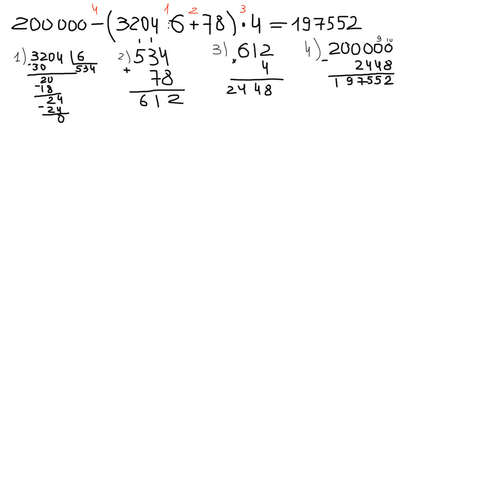 4 1 2 3
200000-(3204:6+78)·4=197552
1) 3204 6 2) 534 3) 612 4) 200000
-30 534 + 78 · 4 - 2448
20 612 2448 197552
-18
24
-24
0